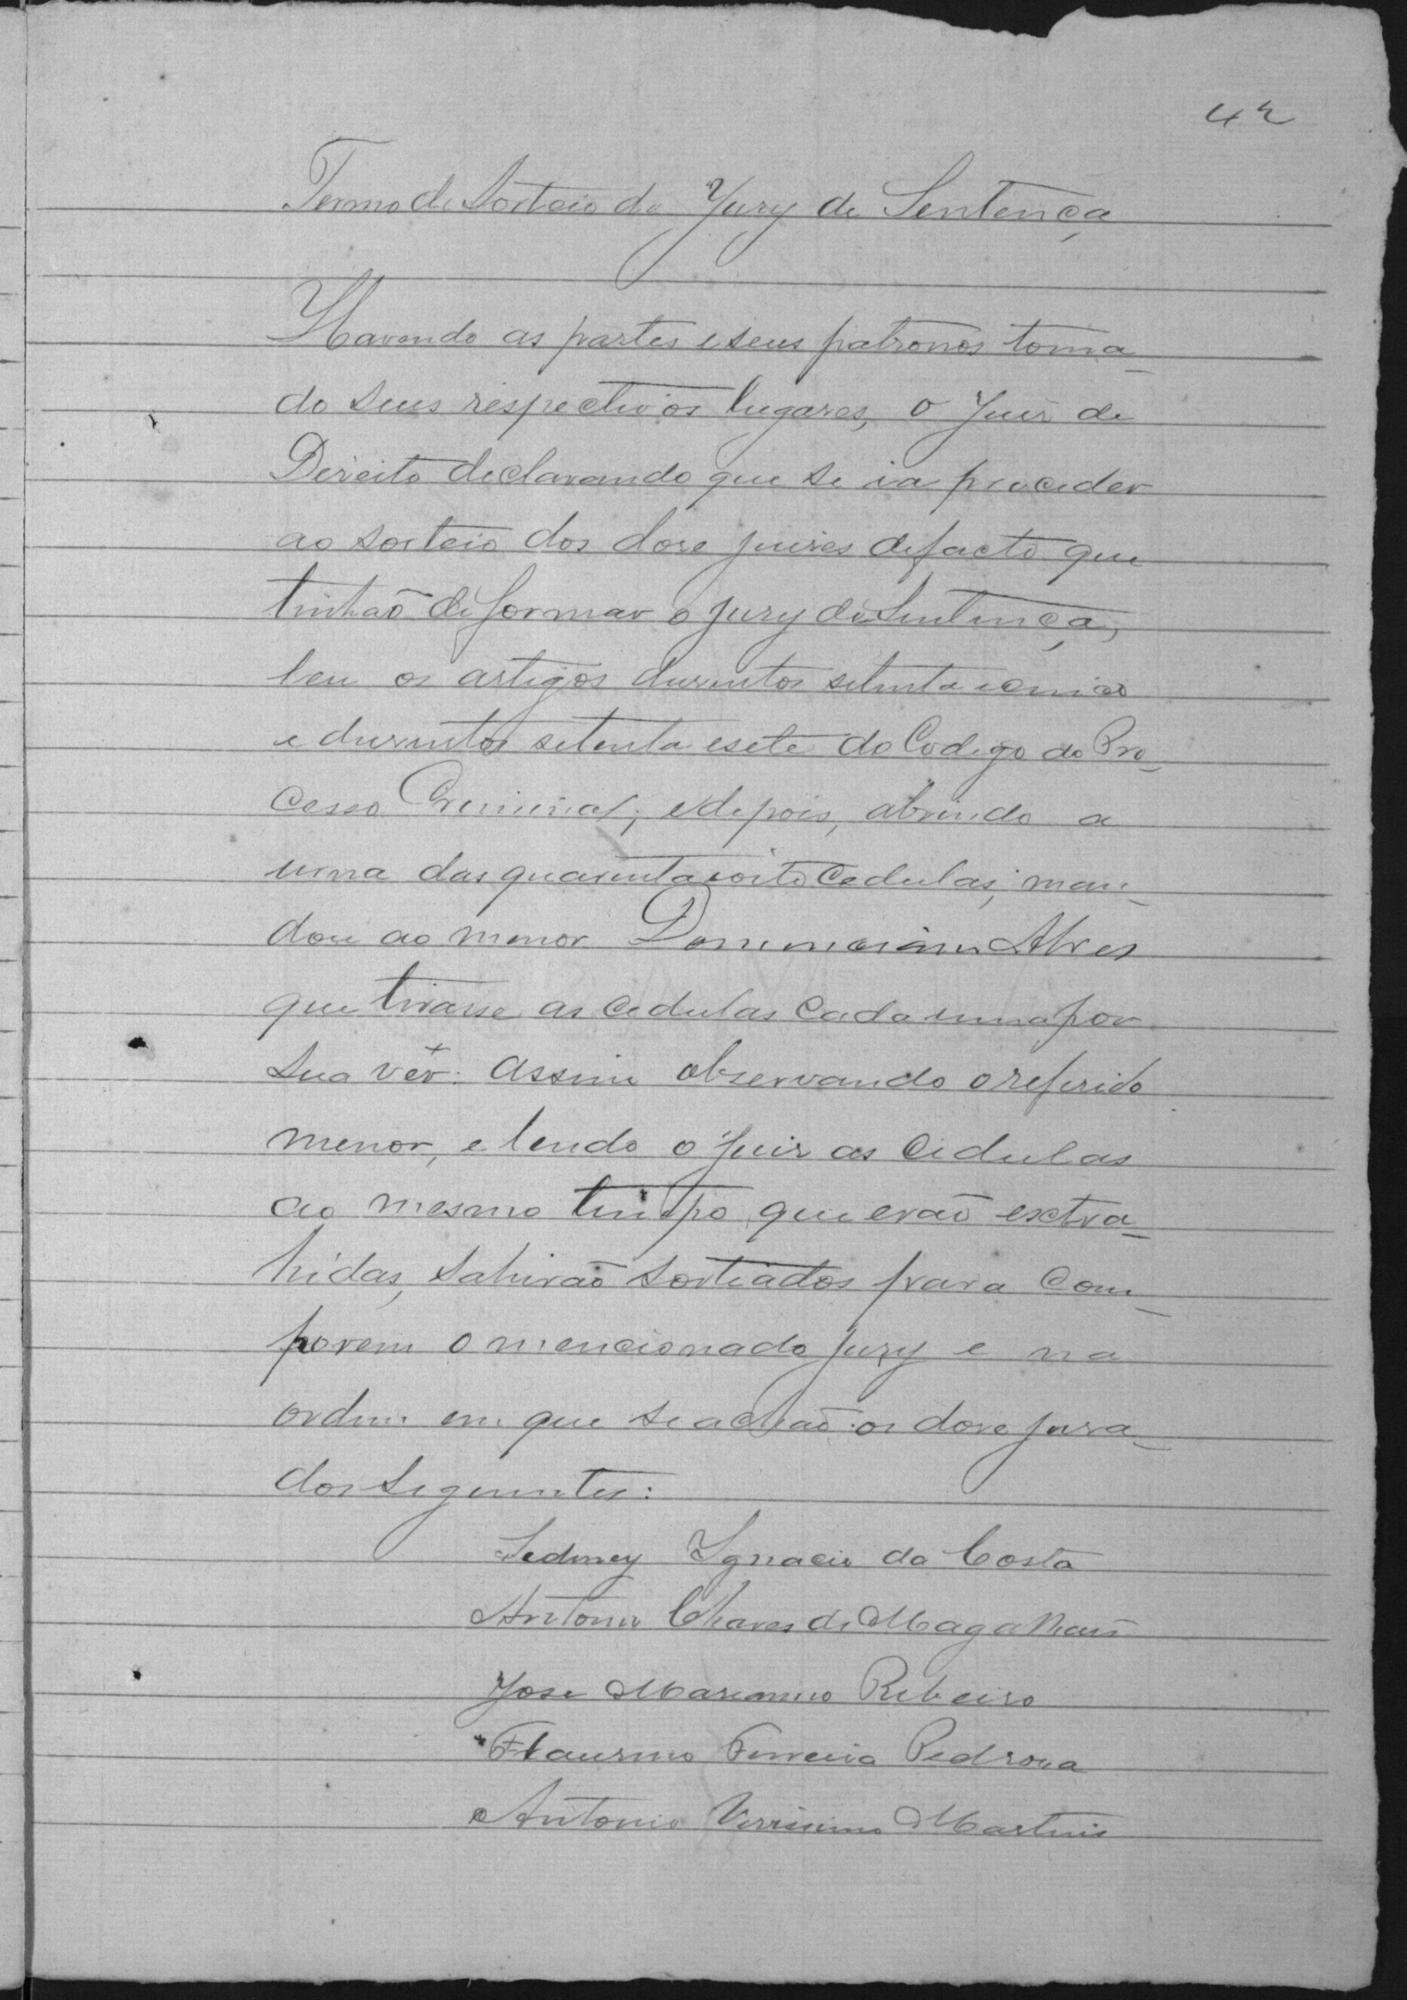 42
Termo de Sorteio do Jury de Sentença
Havendo as partes e seus patronos toma-
do seus respectivos lugares, o Juiz de
Direito declarando que se ia proceder
ao sorteio dos doze juizes de facto que
tinhaõ de formar o jury de Sentença,
leu os artigos duzentos setenta e cinco
e duzentos setenta e sete do Codigo do Pro-
cesso Criminal; e depois, abrindo a
urna das quarenta e oito cedulas, man-
dou ao menor Alves
que tirasse as cedulas cada uma por
sua vez. Assim observando o referido
menor, e lendo o juiz as cedulas
ao mesmo tempo que eraõ extra-
hidas, sahiraõ sorteados para com-
porem o mencionado jury e na
ordem em que se achaõ os doze jura-
dos seguintes:
Sedney Ignacio da Costa
Antonio Chaves de Magalhaes
Jose Marianno Ribeiro
Ferreira Pedroza
Antonio Verissimo Martins